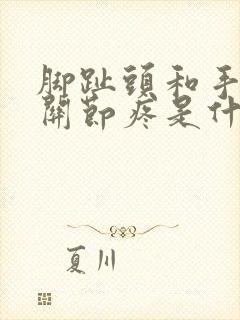 脚趾頭和手
關節疼是什
夏川